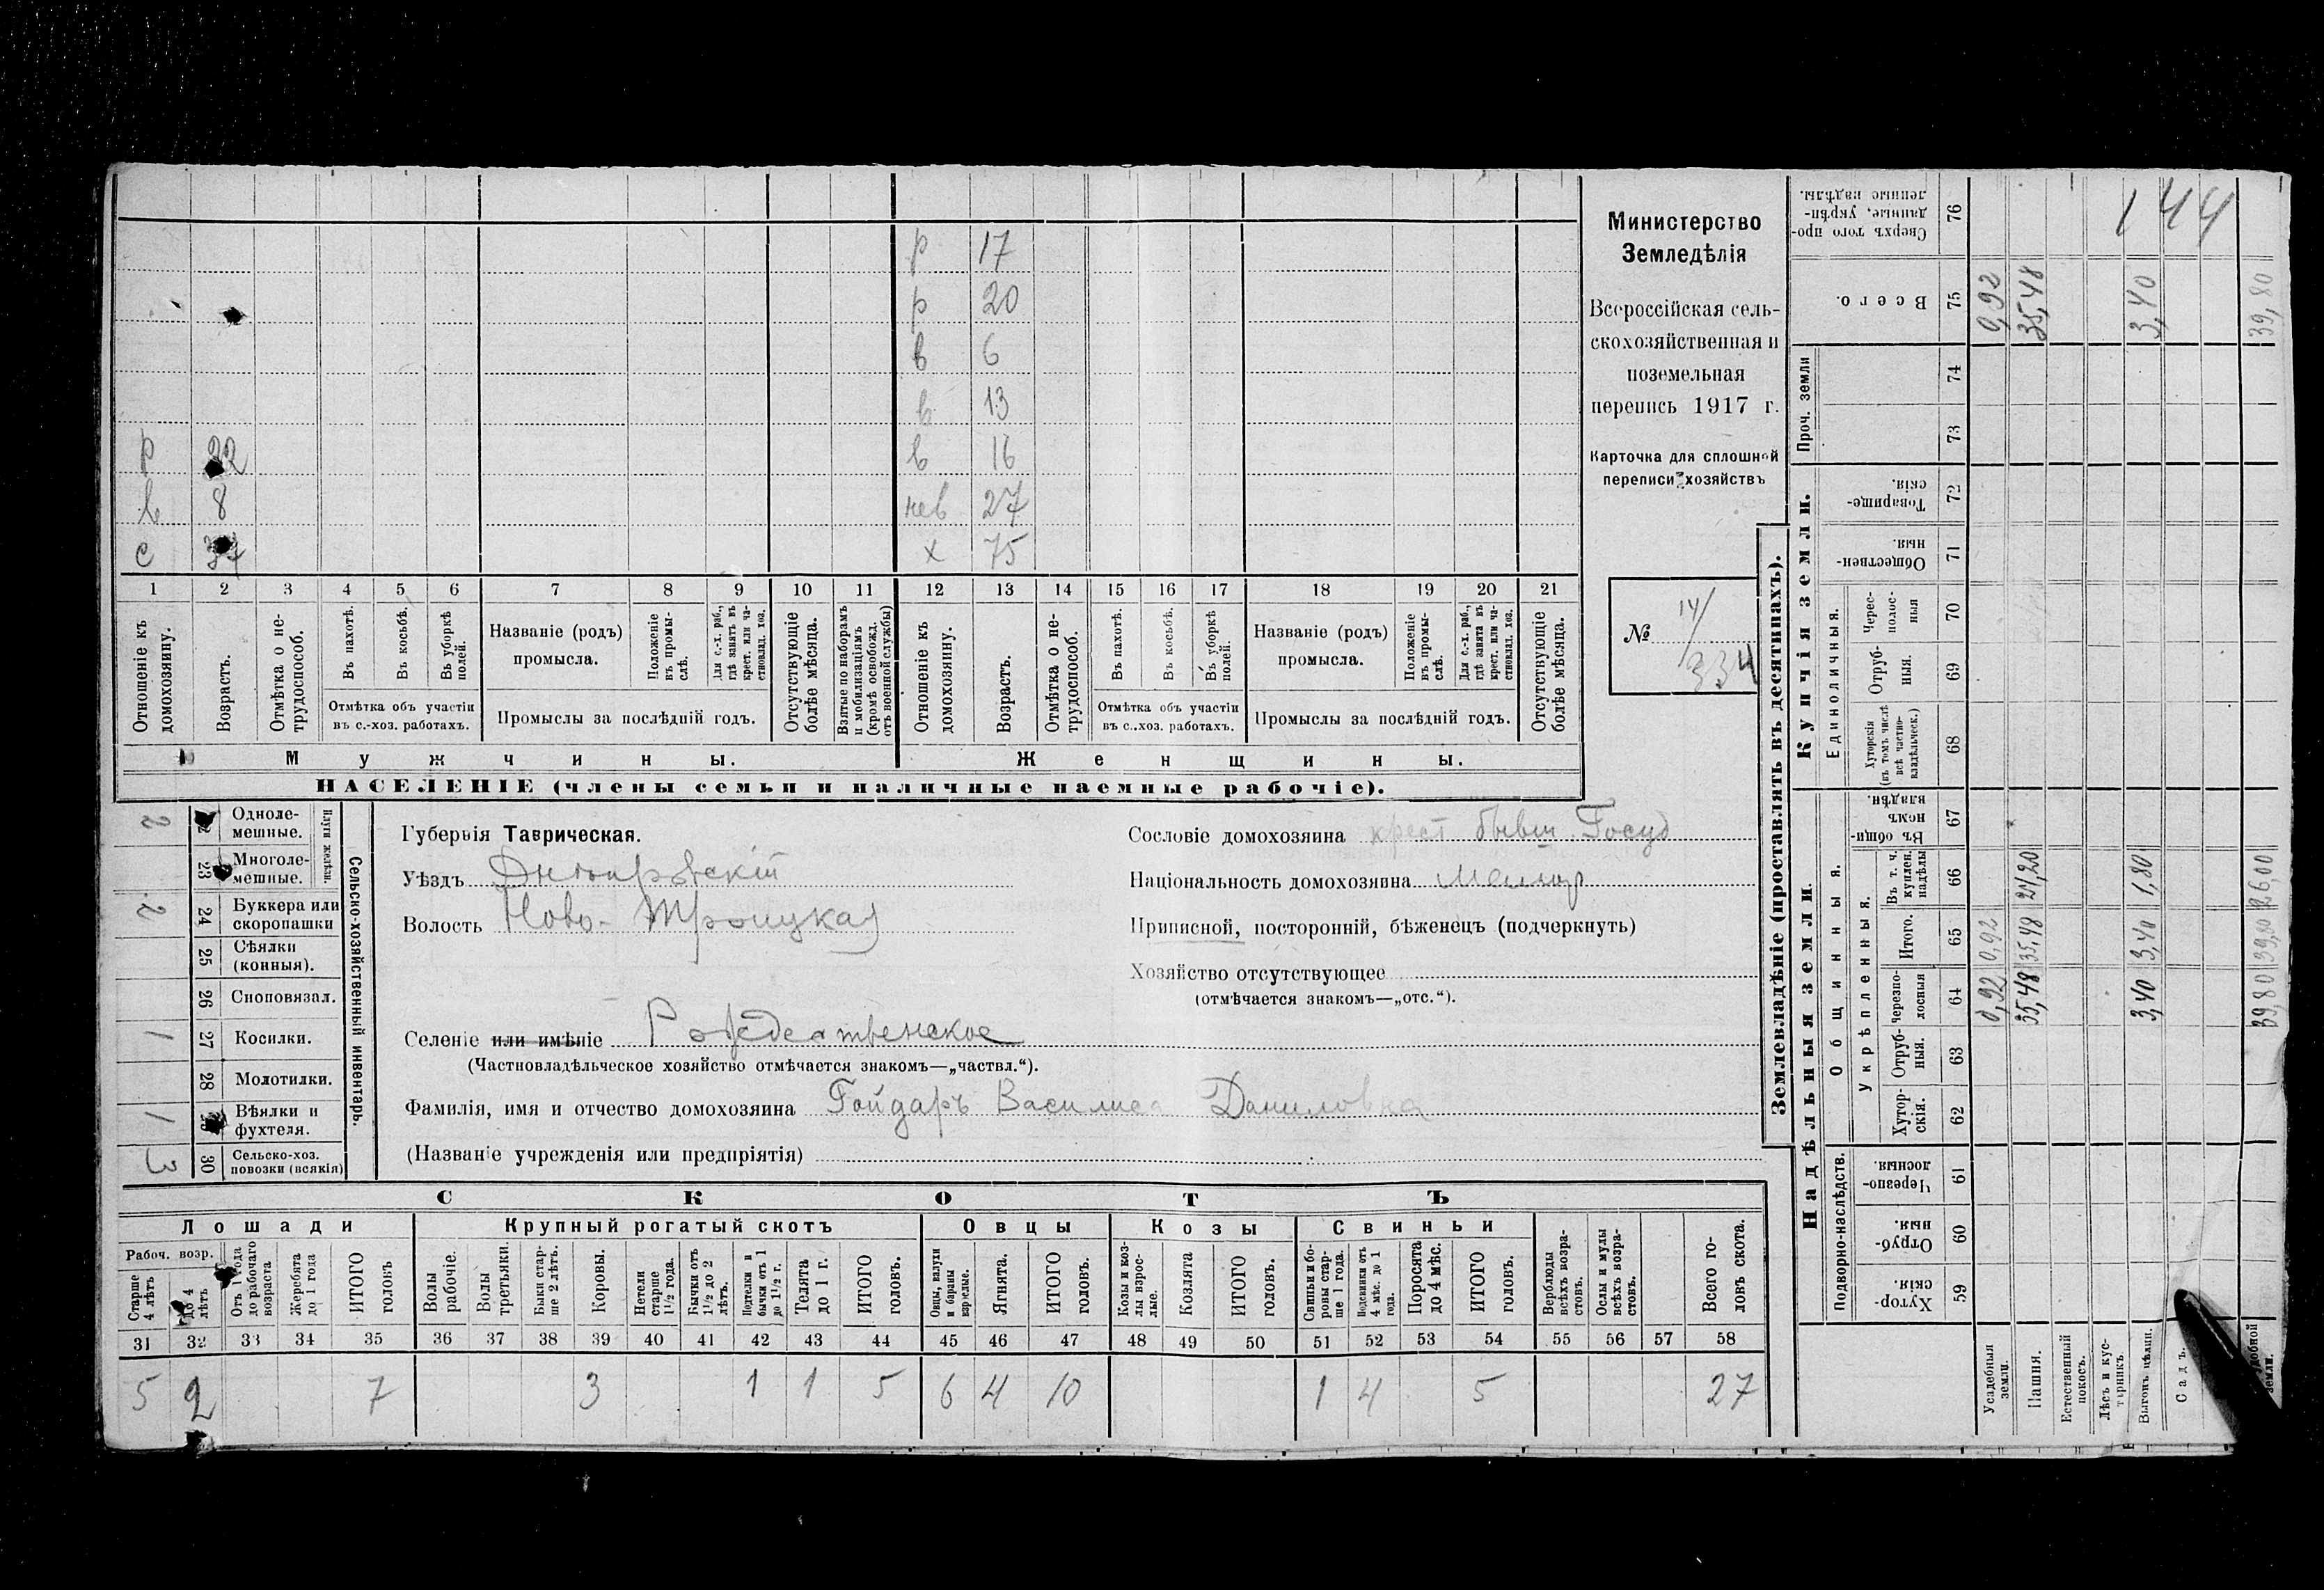 р 17
р 20
в 6
в 13
р 22 в 16
в 8 нев 27
с 37 х 75
1 2 3 4 5 6 7 8 9 10 11 12 13 14 15 16 17 18 19 20 21
Отношеніе къ домохозяину.
Возрастъ.
Отмѣтка о нетрудоспособ.
Въ пахотѣ.
Въ косьбѣ.
Въ уборкѣ полей.
Отмѣтка объ участіи
въ с.-хоз. работахъ.
Названіе (родъ)
промысла.
Положеніе въ промыслѣ.
Для с.-х. раб., гдѣ занятъ въ крест. или частновлад. хоз.
Промыслы за послѣдній годъ.
Отсутствующіе болѣе мѣсяца.
Взятые по наборамъ и мобилизаціямъ (кромѣ освобожд. отъ военной службы)
Отношеніе къ домохозяину.
Возрастъ.
Отмѣтка о нетрудоспособ.
Въ пахотѣ.
Въ косьбѣ.
Въ уборкѣ полей.
Отмѣтка объ участіи
въ с.-хоз. работахъ.
Названіе (родъ)
промысла.
Положеніе въ промыслѣ.
Для с.-х. раб., гдѣ занята въ крест. или частновлад. хоз.
Промыслы за послѣдній годъ.
Отсутствующіе болѣе мѣсяца.
Мужчины. Женщины.
НАСЕЛЕНІЕ (члены семьи и наличные наемные рабочіе).
Министерство
Земледѣлія
Всероссійская сель-
скохозяйственная и
поземельная
перепись 1917 г.
Карточка для сплошной
переписи хозяйствъ
№ 14/334
Сельско-хозяйственный инвентарь.
Плуги желѣзн.
2 22 Одноле-
мешные.
23 Многоле-
мешные.
2 24 Буккера или
скоропашки
25 Сѣялки
(конныя).
26 Сноповязал.
1 27 Косилки.
28 Молотилки.
1 29 Вѣялки и
фухтеля.
3 30 Сельско-хоз.
повозки (всякія)
Губернія Таврическая.
Уѣздъ Днѣпровскій
Волость Ново-Троицкая
Селеніе или имѣніе Рождественское
(Частновладѣльческое хозяйство отмѣчается знакомъ—„частвл.“).
Фамилія, имя и отчество домохозяина Гойдаръ Василиса Даниловна
(Названіе учрежденія или предпріятія)
Сословіе домохозяина крест бывш Госуд
Національность домохозяина малор
Приписной, посторонній, бѣженецъ (подчеркнуть)
Хозяйство отсутствующее
(отмѣчается знакомъ—„отс.“).
СКОТЪ
Лошади Крупный рогатый скотъ Овцы Козы Свиньи
Рабоч. возр.
Старше 4 лѣтъ
до 4 лѣтъ
Отъ 1 года до рабочаго возраста
Жеребята до 1 года
ИТОГО головъ
Волы рабочіе.
Волы третьяки.
Быки старше 2 лѣтъ.
Коровы.
Нетели старше 1½ года.
Бычки отъ 1½ до 2 лѣтъ.
Подтелки и бычки отъ 1 до 1½ г.
Телята до 1 г.
ИТОГО головъ.
Овцы, валухи и бараны взрослые.
Ягнята.
ИТОГО головъ.
Козы и козлы взрослые.
Козлята
ИТОГО головъ.
Свиньи и боровы старше 1 года.
Подсвинки отъ 4 мѣс. до 1 года.
Поросята до 4 мѣс.
ИТОГО головъ.
Верблюды всѣхъ возрастовъ.
Ослы и мулы всѣхъ возрастовъ.
Всего головъ скота.
31 32 33 34 35 36 37 38 39 40 41 42 43 44 45 46 47 48 49 50 51 52 53 54 55 56 57 58
5 2 7 3 1 1 5 6 4 10 1 4 5 27
Землевладѣніе (проставлять въ десятинахъ).
Надѣльныя земли.
Купчія земли.
Проч. земли
Подворно-наслѣдств.
Общинныя.
Укрѣпленныя.
Единоличныя.
Хутор-
скія. 59
Отруб-
ныя. 60
Черезпо-
лосныя. 61
Хутор-
скія. 62
Отруб-
ныя. 63
Черезпо-
лосныя 64
Итого. 65
Въ т. ч. куплен. надѣлы 66
Въ общин-
номъ
владѣн. 67
Хуторскія (въ томъ числѣ всѣ частновладѣльческ.) 68
Отруб-
ныя. 69
Черес-
полос-
ныя 70
Обществен-
ныя. 71
Товарище-
скія. 72
73
74
Всего. 75
Сверхъ того про-
данные, укрѣп-
ленные надѣлы. 76
Усадебныя земли. 0,92 0,92 0,92
Пашня. 35,48 35,48 24,20 35,48
Естественный покосъ.
Лѣсъ и кустарникъ.
Выгонъ, цѣлин. 3,40 3,40 1,80 3,40
Садъ.
39,80 39,80 26,00 39,80
144